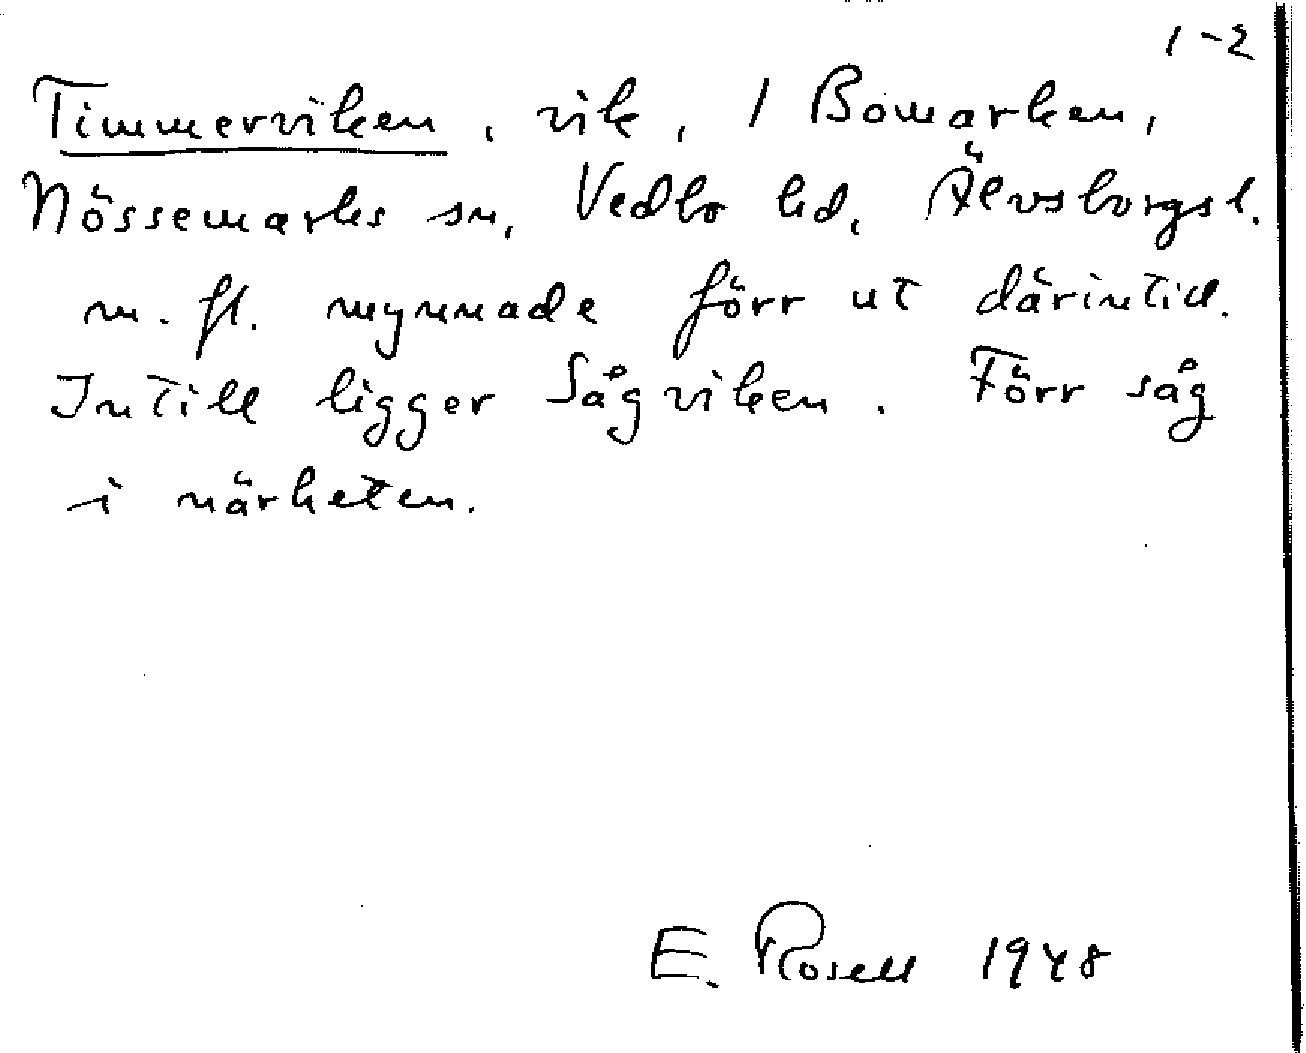 1-2
Timmerviken, vik, 1 Bömarken,
Nössemarks sn, Vedbo hd, Älvsborgs l.
m. fl. mynnade förr ut därintill.
Intill ligger Sågviken. Förr såg
i närheten.
E. Rosell 1948